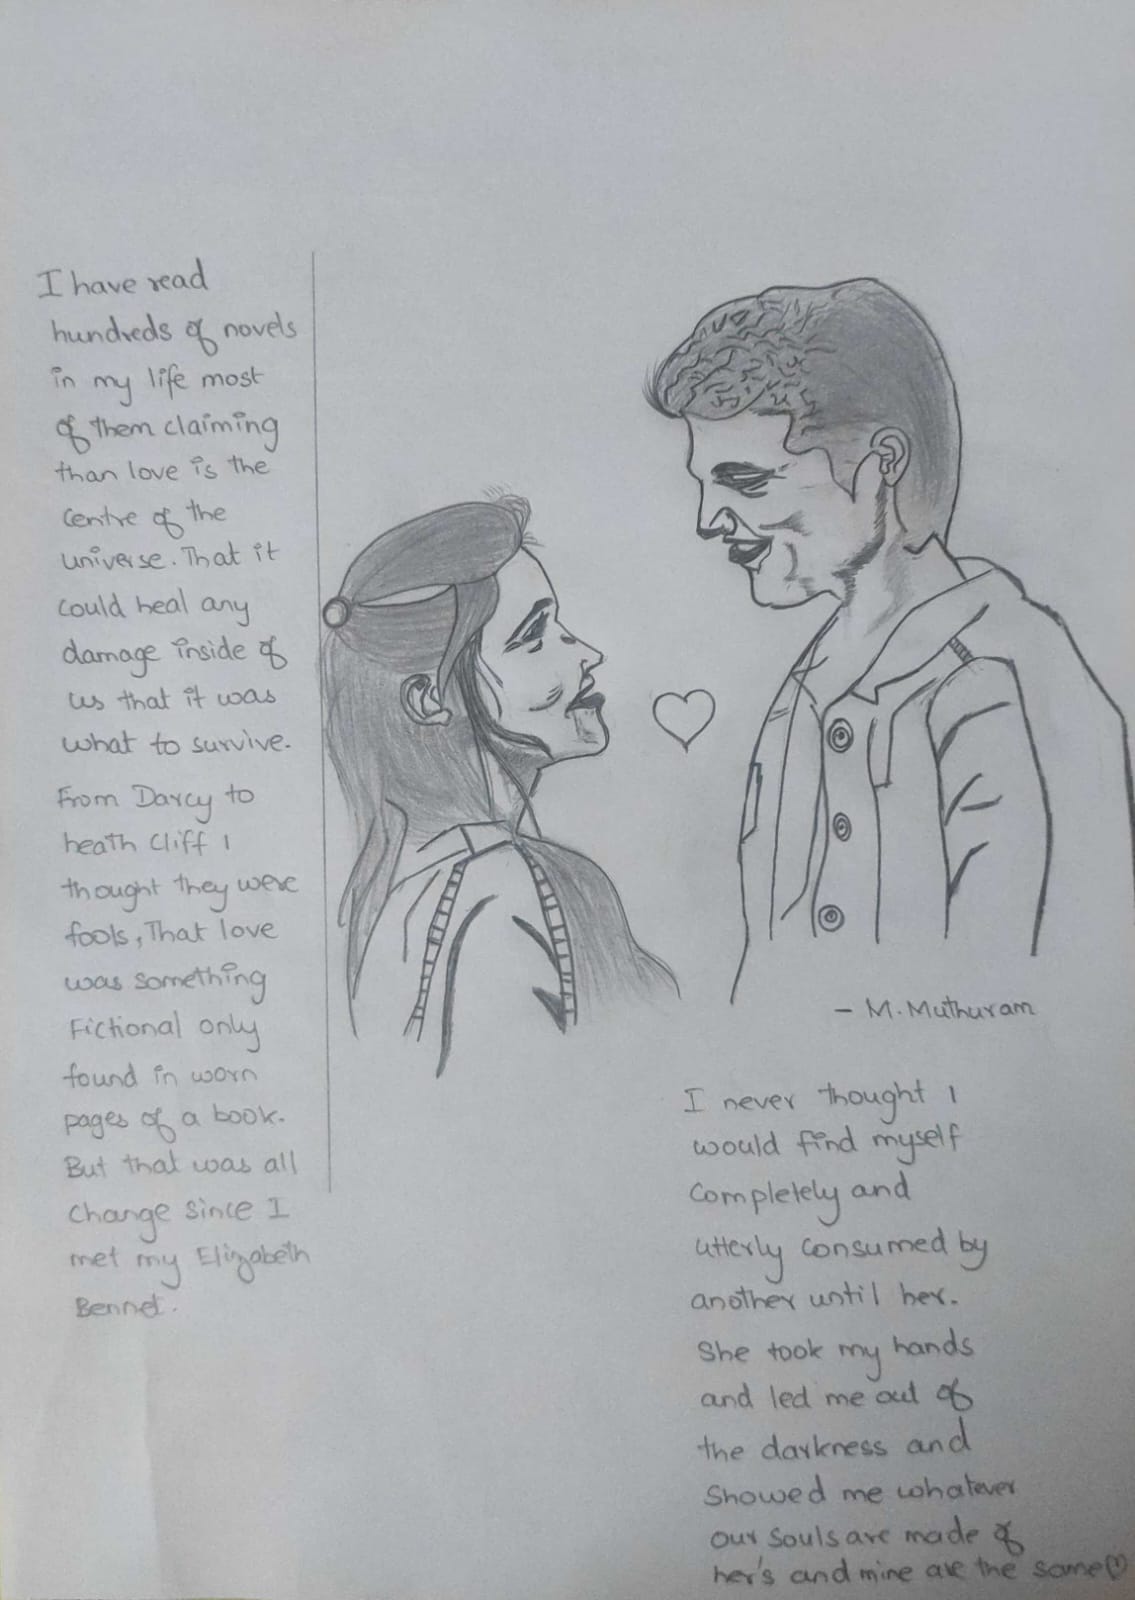 I have read
hundreds of novels
in my life most
of them claiming
than love is the
centre of the
universe. That it
could heal any
damage inside of
us that it was
what to survive.
From Darcy to
heath Cliff I
thought they were
fools, That love
was something
Fictional only
found in worn
pages of a book.
But that was all
change since I
met my Elizabeth
Bennet.
- M. Muthuram
I never thought I
would find myself
completely and
utterly consumed by
another until her.
She took my hands
and led me out of
the darkness and
Showed me whatever
our souls are made of
her's and mine are the same♡